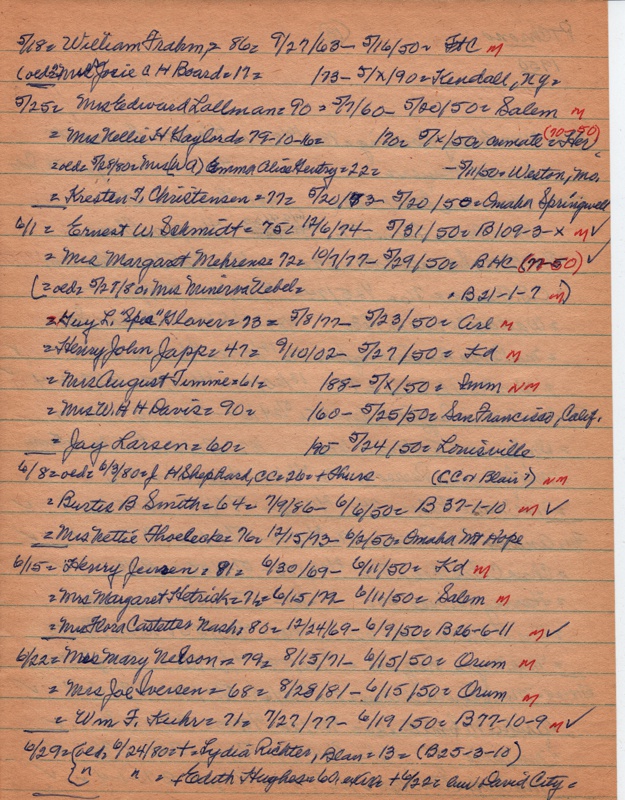 5/18= William Frahm,= 86= 9/27/63- 5/16/50= FHC M
(oed= Mrs Josie A H Board= 17= /73- 5/X/90= Kendall, Ny=
5/25= Mrs Edward Lallman= 90= 5/7/60- 5/20/50= Salem M
= Mrs Nellie H Gaylord= 79-10-16= /70= 5/X/50= cremate = Her"
= oed= 5/28/80= Mrs (W A) Emma Alice Gentry= 22= -5/11/50= Weston, Mo.
= Kresten T. Christensen= 77= 5/20/73- 5/20/50= Omaha Springwell
6/1= Ernest W. Schmidt= 75= 12/6/74- 5/31/50= B109-3-X M✓
= Mrs Margaret Mehrens= 72= 10/7/77- 5/29/50= BHC ✓
(=oed= 5/27/80= Mrs Minerva Uebel= = B21-1-7 M)
= Guy L. "Spec" Glover= 73= 5/8/77- 5/23/50= Arl M
= Henry John Japp= 47= 9/10/02- 5/27/50= Kd M
= Mrs August Timme= 61= /88- 5/X/50= Imm NM
= Mrs W. H H Davis= 90= /60- 5/25/50= San Francisco, Calif.
= Jay Larsen= 60= /90 5/24/50= Louisville
6/8= oed= 6/3/80= J H Shephard, CC= 26= + Thurs (CC or Blair?) NM
= Burtis B Smith= 64= 7/9/86- 6/6/50= B 37-1-10 M ✓
= Mrs Nettie Thoelecke= 76= 12/15/73- 6/2/50= Omaha Mt Hope
6/15= Henry Jensen= 81= 6/30/69- 6/11/50= Kd M
= Mrs Margaret Hetrick= 71= 6/15/79- 6/11/50= Salem M
= Mrs Flora Castetter Nash= 80= 12/24/69- 6/9/50= B26-6-11 M ✓
6/22= Mrs Mary Nelson= 79= 8/15/71- 6/15/50= Orum M
= Mrs Joe Iversen= 68= 8/28/81- 6/15/50= Orum M
= Wm F. Kuhr= 71= 7/27/77- 6/19/50= B77-10-9 M✓
6/29= (oed= 6/24/80= + Lydia Richter, Blair= 13= (B25-3-10)
" " = Edith Hughes= 60 + 6/22= David City=